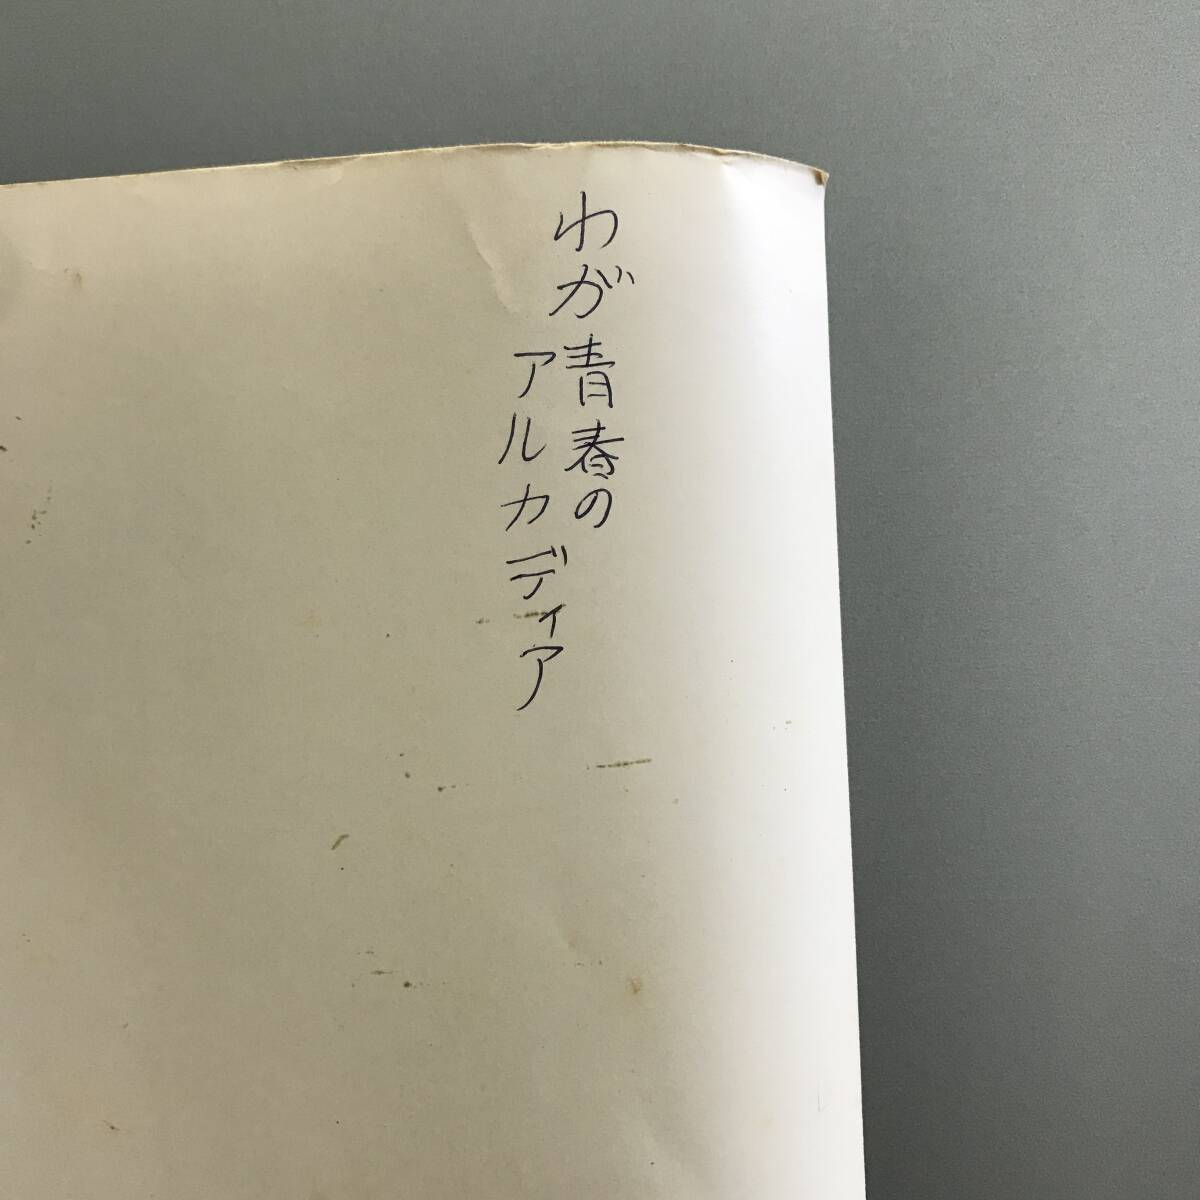 わが青春の
アルカディア